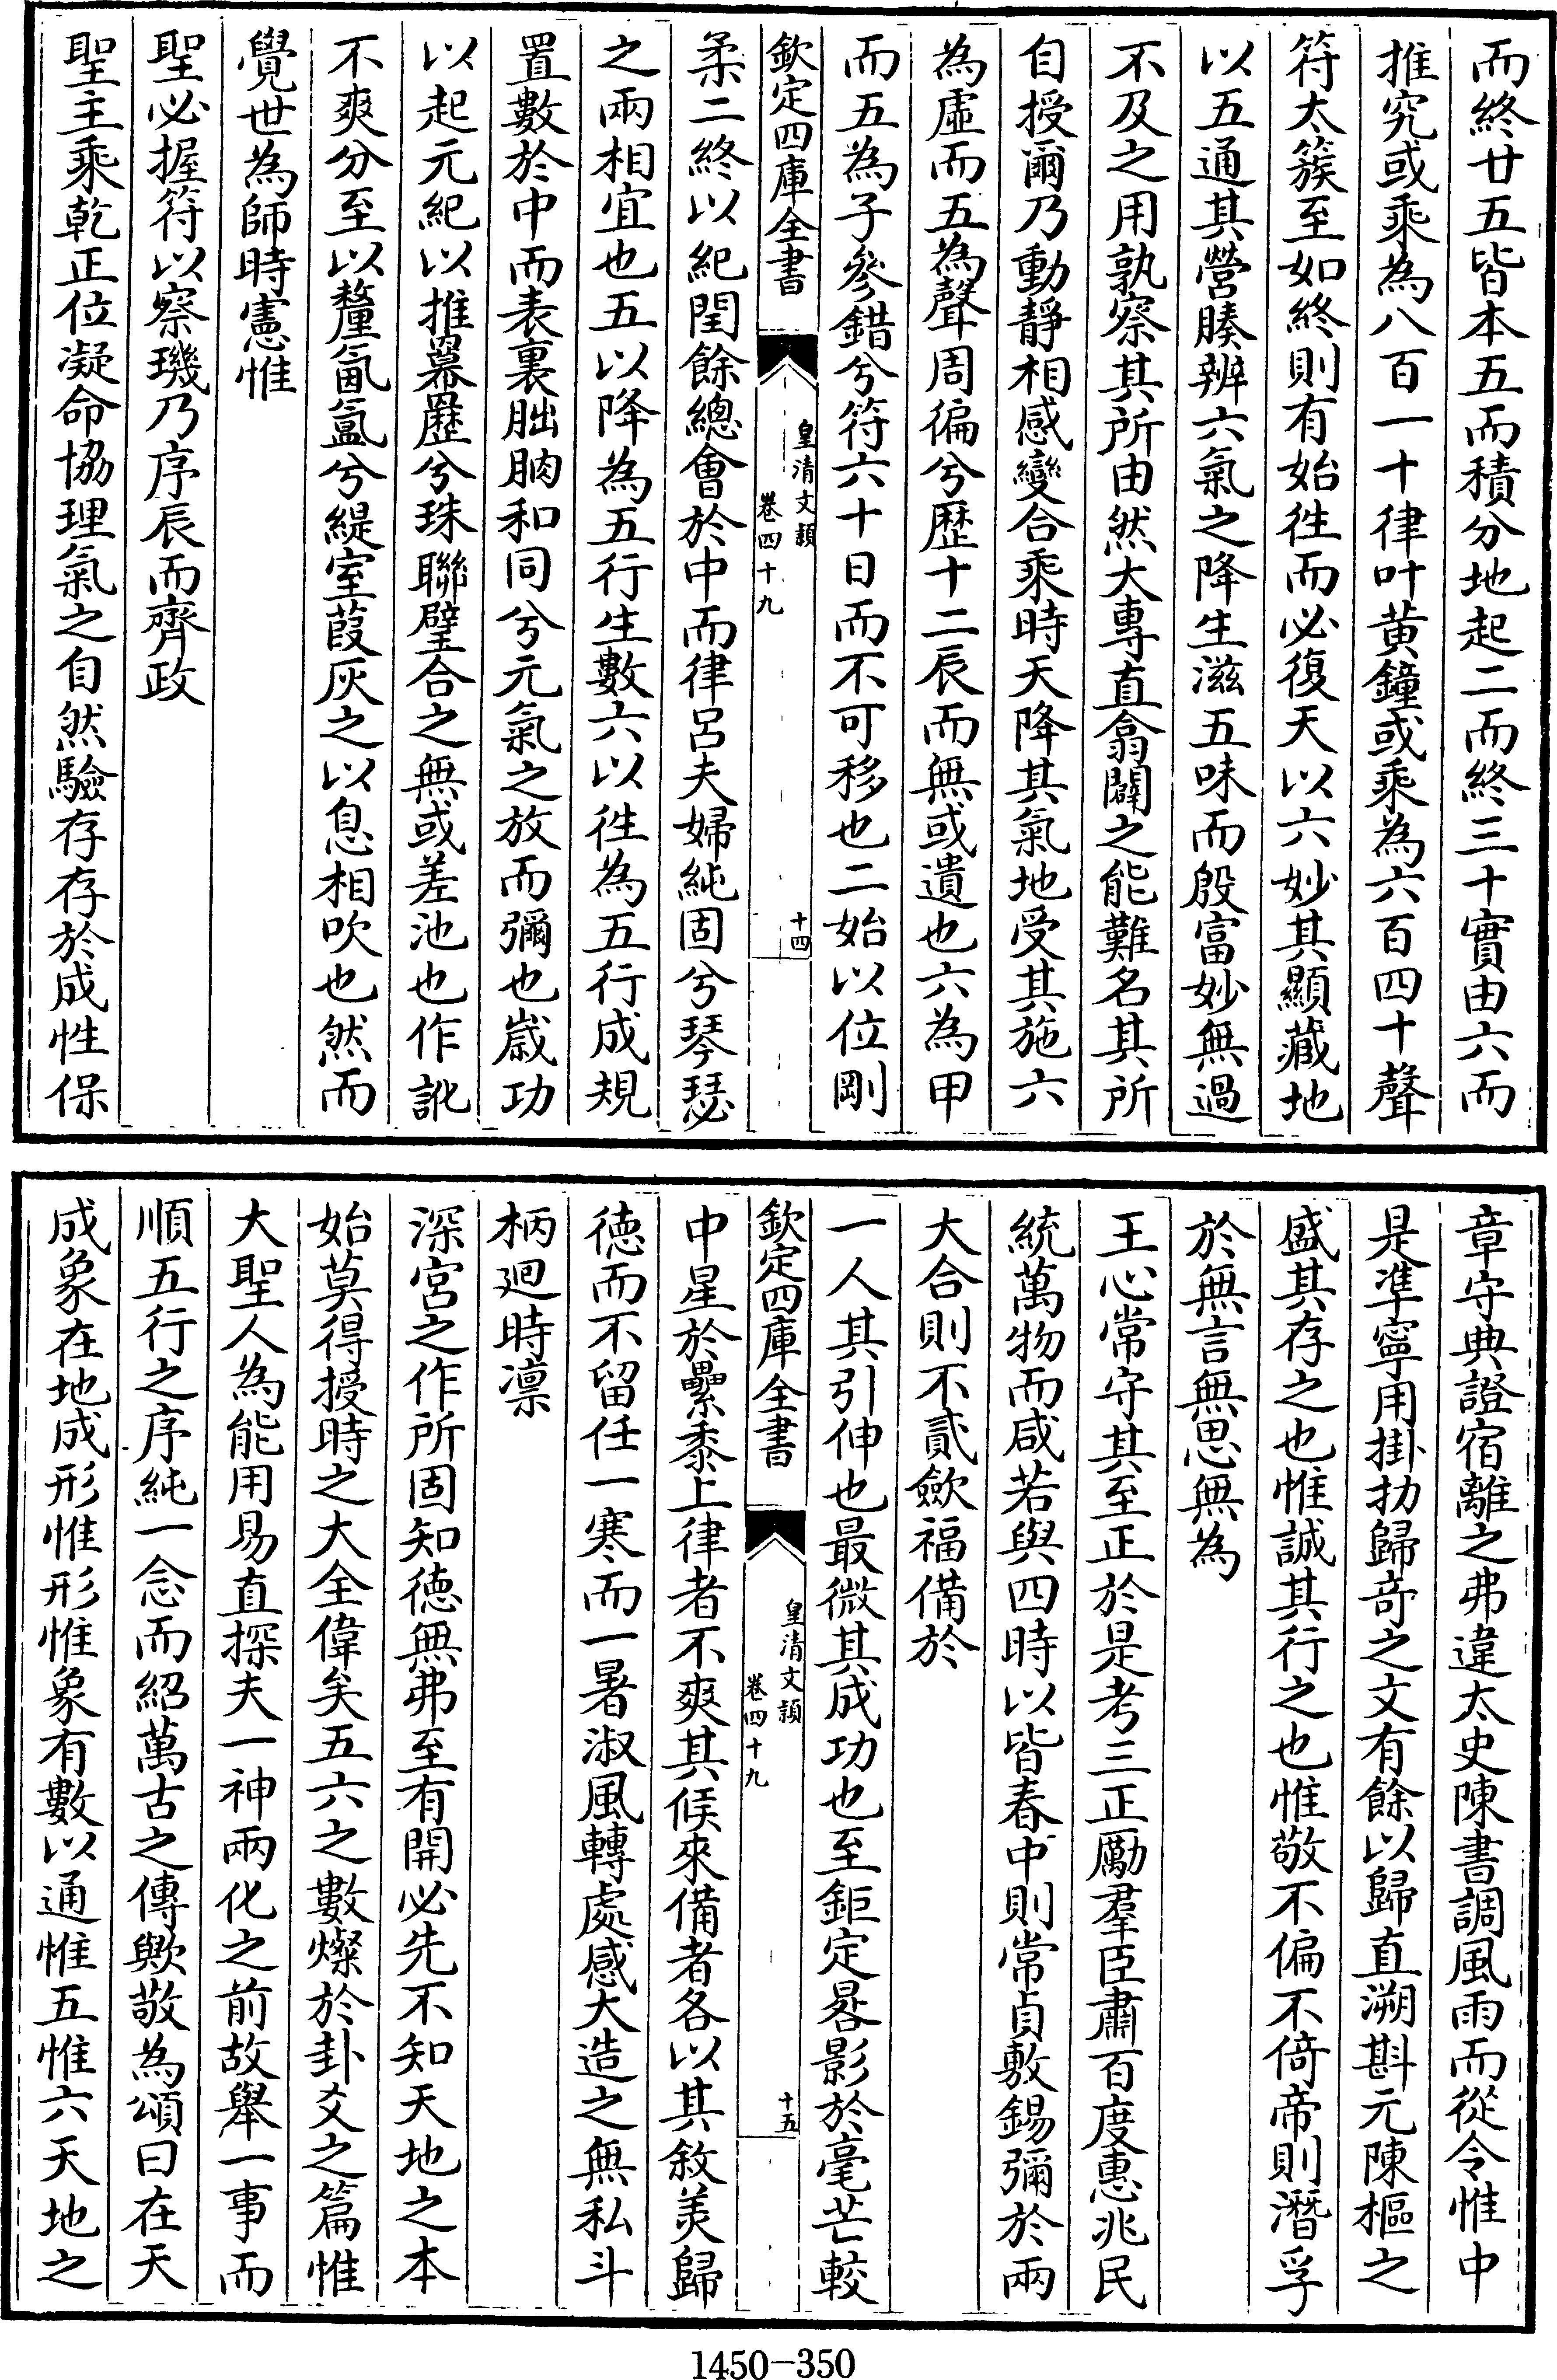 而終廿五皆本五而積分地起二而終三十實由六而
推究或乘為八百一十律叶黄鐘或乘為六百四十聲
符太簇至如終則有始徃而必復天以六妙其顯藏地
以五通其營腠辨六氣之降生滋五味而殷富妙無過
不及之用孰察其所由然大專直翕闢之能難名其所
自授爾乃動靜相感變合乘時天降其氣地受其施六
為虛而五為聲周徧兮歴十二辰而無或遺也六為甲
而五為子參錯兮符六十日而不可移也二始以位剛
欽定四庫全書
皇清文穎
卷四十九
十四
柔二終以紀閏餘總會於中而律呂夫婦純固兮琴瑟
之兩相宜也五以降為五行生數六以徃為五行成規
置數於中而表裏朏朒和同兮元氣之放而彌也嵗功
以起元紀以推冪歷兮珠聯璧合之無或差池也作訛
不爽分至以釐氤氲兮緹室葭灰之以息相吹也然而
覺世為師時憲惟
聖必握符以察璣乃序辰而齊政
聖主乘乾正位凝命協理氣之自然驗存存於成性保
章守典證宿離之弗違太史陳書調風雨而從令惟中
是凖寧用掛扐歸奇之文有餘以歸直溯斟元陳樞之
盛其存之也惟誠其行之也惟敬不偏不倚帝則潛孚
於無言無思無為
王心常守其至正於是考三正勵羣臣肅百度惠兆民
統萬物而咸若與四時以皆春中則常貞敷錫彌於兩
大合則不貳歛福備於
一人其引伸也最微其成功也至鉅定晷影於毫芒較
欽定四庫全書
皇清文穎
卷四十九
十五
中星於纍黍上律者不爽其候來備者各以其敘美歸
德而不留任一寒而一暑淑風轉處感大造之無私斗
柄廻時凛
深宮之作所固知德無弗至有開必先不知天地之本
始莫得授時之大全偉矣五六之數燦於卦爻之篇惟
大聖人為能用易直探夫一神兩化之前故舉一事而
順五行之序純一念而紹萬古之傳歟敬為頌曰在天
成象在地成形惟形惟象有數以通惟五惟六天地之
1450-350